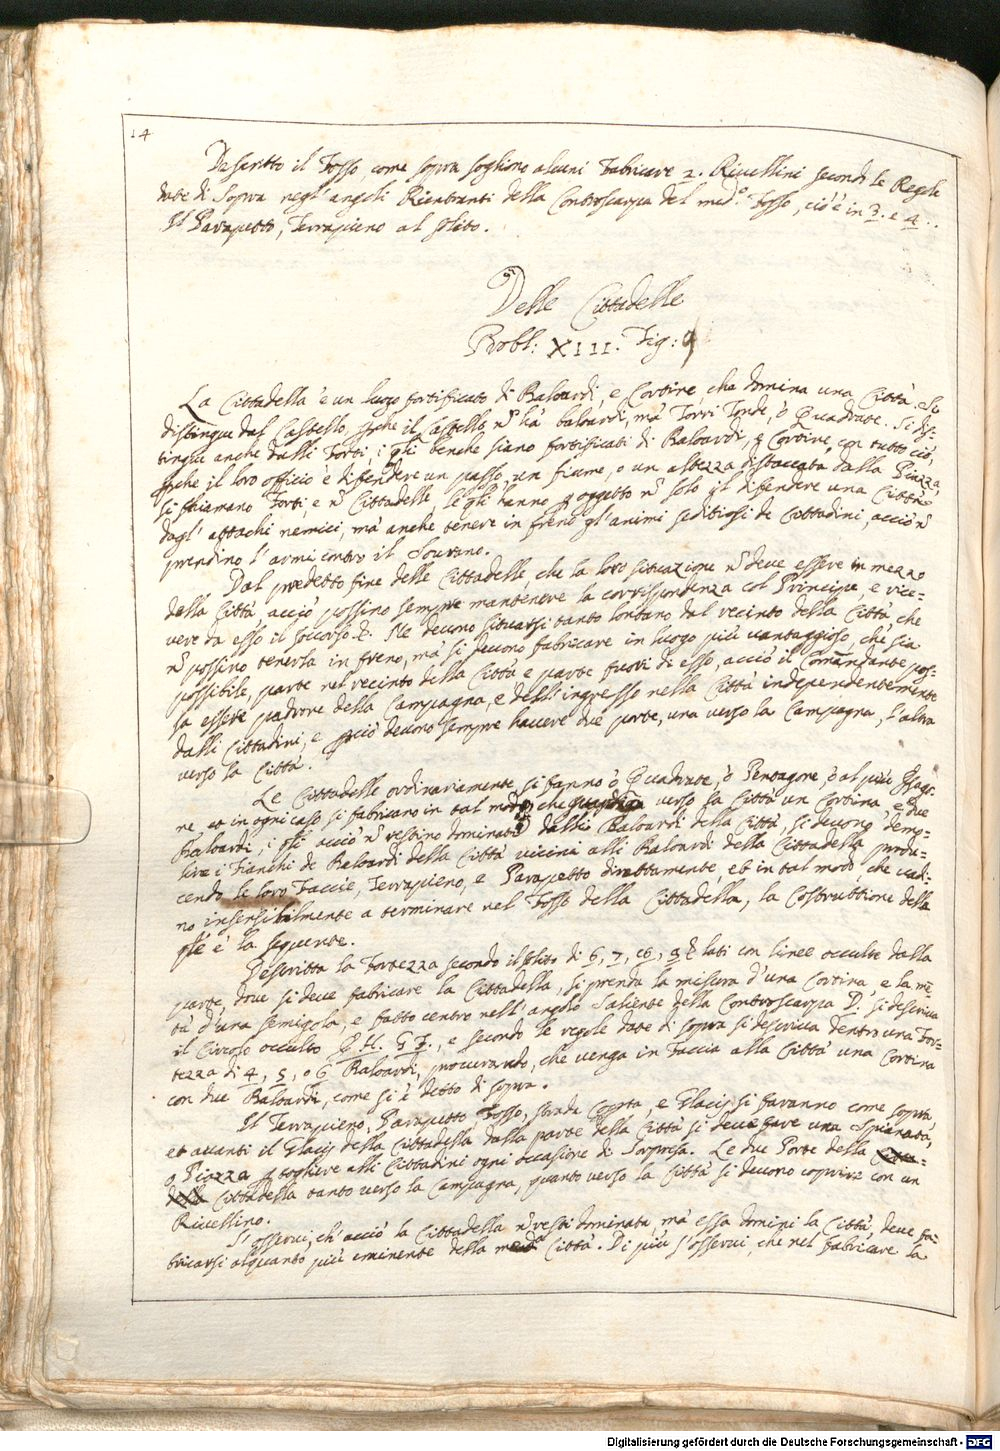 14
Descritto il Fosso, come sopra sogliono alcuni Fabricare 2. Rivellini secondo le Regole
date di Sopra negl' angoli Rientranti della Controscarpa del med.º Fosso, cioè in 3. e 4..
Il Parapetto, Terrapieno al solito.
Delle Cittadelle
Probl: XIII. Fig: 9
La Cittadella è un luogo fortificato di Baloardi, e Cortine, che domina una Città. Si di-
stingue dal Castello, perche il Castello, nō hà baloardi, mà Torri Tonde, ò Quadrate. Si dis-
tingue anche dalli Forti, i qli benche siano fortificati di Baloardi, e Cortine, con tutto ciò,
perche il loro officio è difendere un passo, un fiume, o un altezza distaccata dalla Piazza,
si chiamano Forti, e nō Cittadelle, le qli hanno p oggetto nō solo il difendere una Città
dagl' attachi nemici, mà anche tenere in freno gl' animi seditiosi de Cittadini, acciò nō
prendino l' armi contro il Sovrano.
Dal predetto fine delle Cittadelle, che la loro situazione nō deve essere in mezzo
della Città, acciò possino sempre mantenere la corrispondenza col Principe, e rice-
vere da esso il soccorso &. Ne devono situarsi tanto lontano dal recinto della Città, che
nō possino tenerla in freno, mà si devono fabricare in luogo più vantaggioso, che sia
possibile, parte nel recinto della Città e parte fuori di esso, acciò il Comandante pos-
sa essere padrone della Campagna, e dell' ingresso nella Città independentemente
dalli Cittadini, e perciò devono sempre havere due porte, una verso la Campagna, l' altra
verso la Città.
Le Cittadelle ordinariamente si fanno ò Quadrate, ò Pentagone, ò al più Esago-
ne et in ogni caso si fabricano in tal modo, che verso la Città un Cortina, e due
Baloardi, i qli acciò nō restino dominati dalli Baloardi della Città, si devono demo-
lire i Fianchi de Baloardi della Città vicini alli Baloardi della Cittadella produ-
cendo le loro Faccie, Terrapieno, e Parapetto direttamente, et in tal modo, che vadi-
no insensibilmente a terminare nel Fosso della Cittadella, la Costruttione della
qle è la seguente.
Descritta la Fortezza secondo il solito di 6, 7, co, 8 & lati con linee occulte dalla
parte, dove si deve fabricare la Cittadella, si prenda la misura d' una Cortina, e la me-
tà d' una semigola, e fatto centro nell' angolo Saliente della Controscarpa D. si descriva
il Circolo occulto G. H. G F., e secondo le regole date di sopra si descriva dentro una For-
tezza di 4, 5, o 6 Baloardi, procurando, che venga in Faccia alla Città una Cortina
con due Baloardi, come si è detto di sopra.
Il Terrapieno, Parapetto Fosso, strada Coperta, e Glacij si faranno come sopra,
et avanti il Glacij della Cittadella dalla parte della Città si deve fare una Spianata,
o Piazza p togliere alli Cittadini ogni occasione di Sorpresa. Le due Porte della
Cittadella tanto verso la Campagna, quanto verso la Città si devono coprire con un
Rivellino.
S' osservi, ch' acciò la Cittadella nō resti dominata, mà essa domini la Città, deve fa-
bricarsi alquanto più eminente della medª Città. Di più s' osservi, che nel fabricare la
Digitalisierung gefördert durch die Deutsche Forschungsgemeinschaft - DFG